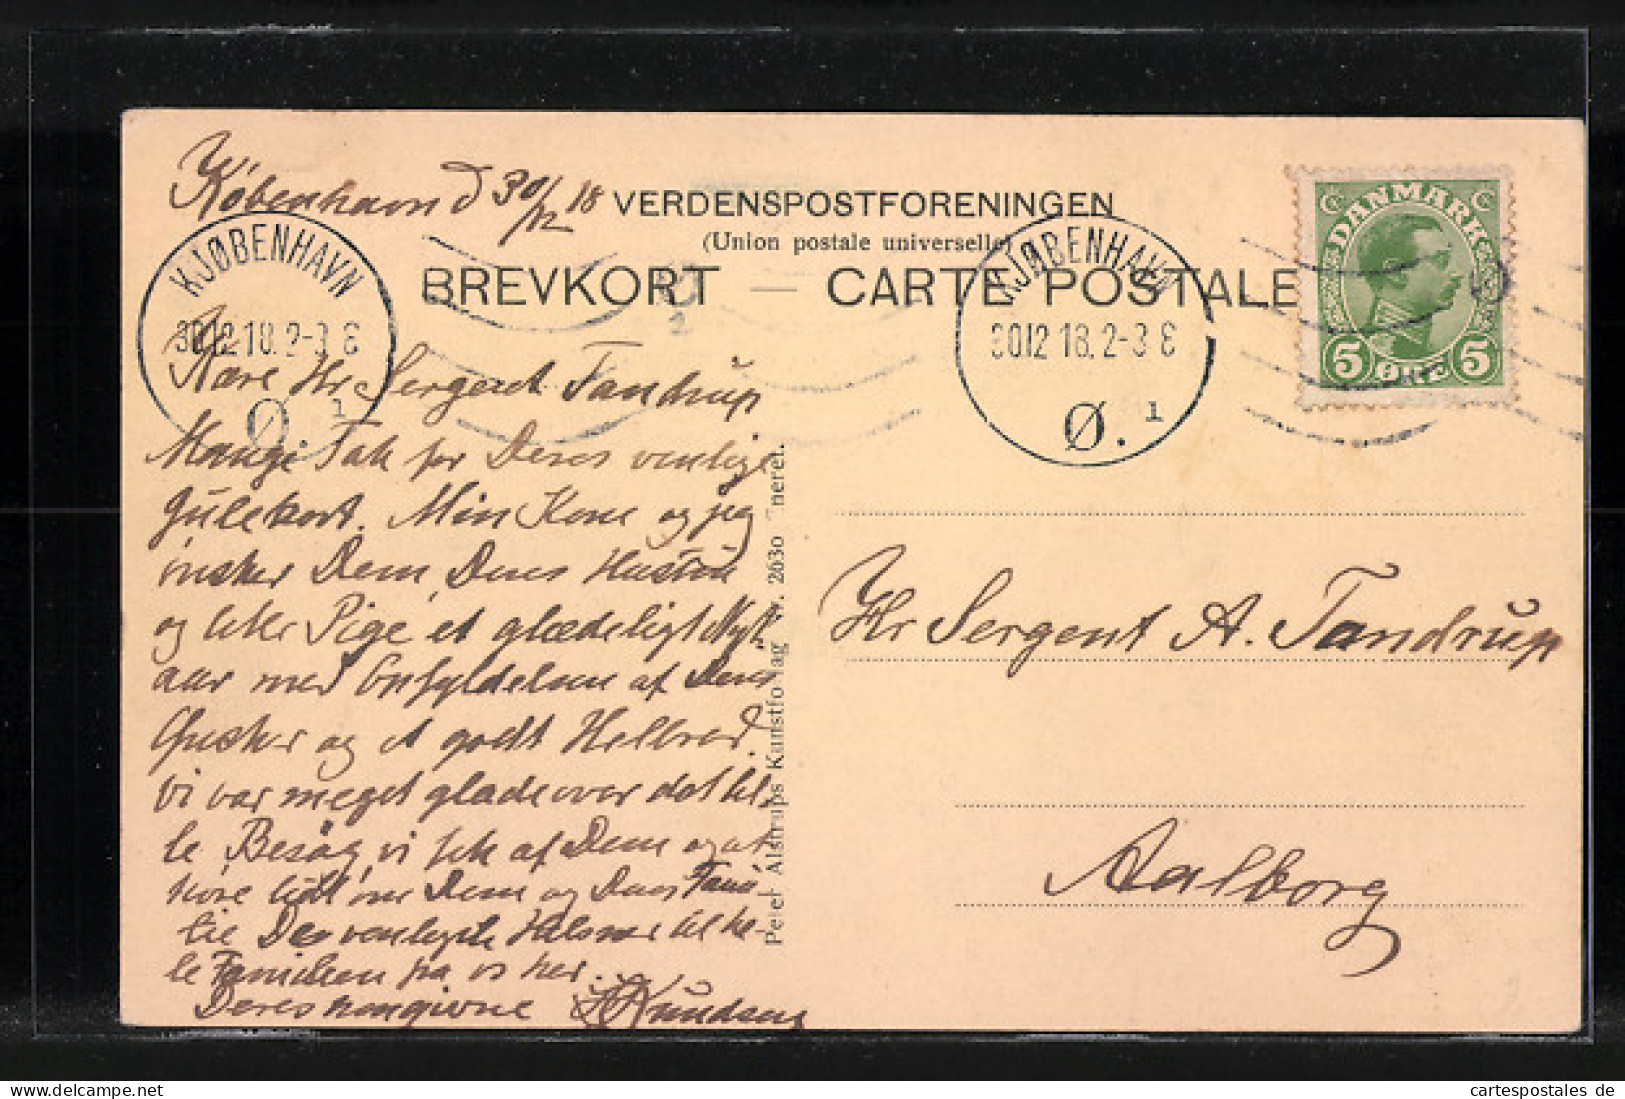 København d 30/12 18
VERDENSPOSTFORENINGEN
(Union postale universelle)
BREVKORT — CARTE POSTALE
KJØBENHAVN
30.12.18. 2-3 E
Ø. 1
KJØBENHAVN
30.12.18. 2-3 E
Ø. 1
DANMARK
5 ØRE 5
Kære Hr Sergent Tandrup
Mange Tak for Deres venlige
Julekort. Min Kone og jeg
ønsker Dem, Deres Hustru
og lille Pige et glædeligt Nyt-
aar med Opfyldelsen af Deres
Ønsker og et godt Helbred.
Vi var meget glade over det lil-
le Besøg, vi fik af Dem og at
høre lidt om Dem og Deres Fami-
lie De venligste Hilsner til he-
le Familien fra os her.
Deres hengivne Knudsen
Peter Alstrups Kunstforlag Nr. 2630 Eneret.
Hr Sergent A. Tandrup
Aalborg
cartespostales de